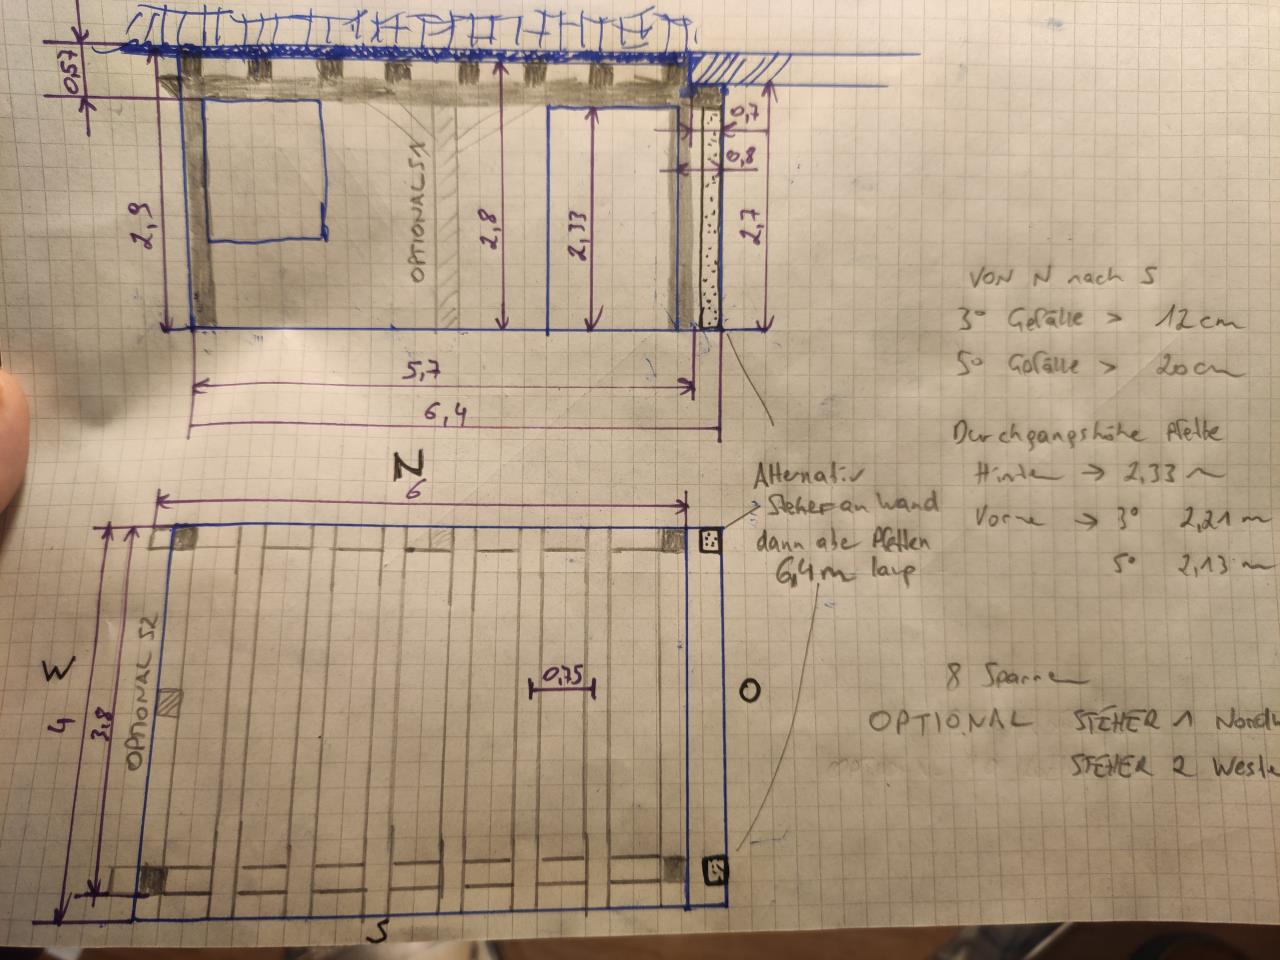 0,57
2,9
OPTIONAL S1
2,8
2,33
0,7
0,8
2,7
5,7
6,4
VON N nach S
3° Gefälle > 12 cm
5° Gefälle > 20 cm
Durchgangshöhe Pfette
Hinten → 2,33 m
Vorne → 3° 2,21 m
5° 2,13 m
N
6
Alternativ
Steher an Wand
dann aber Pfetten
6,4 m lang
W
4
3,8
OPTIONAL S2
0,75
O
S
8 Sparren
OPTIONAL STEHER 1 Nord
STEHER 2 Weste